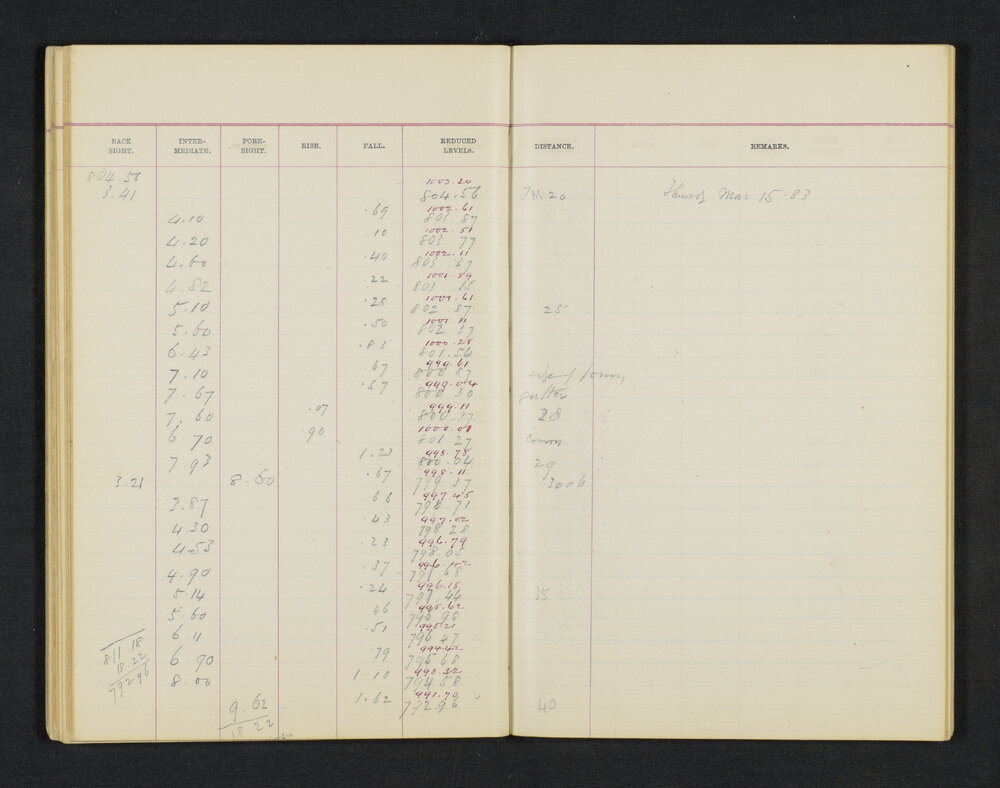 BACK SIGHT. INTER- MEDIATE. FORE- SIGHT. RISE. FALL. REDUCED LEVELS. DISTANCE. REMARKS.
804.56 1003.20
3.41 804.56 7M 20 Thursd Mar 15 . 83
4.10 .69 1002.61 803 87
4.20 .10 1002.51 803 77
4.60 .40 1002.11 803 37
4.82 .22 1001.89 803 15
5.10 .28 1001.61 802 87 25
5.60 .50 1001.11 802 37
6.43 .83 1000.28 801.54
7.10 .67 999.61 800 87
7.67 .57 999.04 800 30 gutter
7.60 .07 999.11 800.37 28
6.70 .90 1000.01 801 27 Crown
7 93 1.23 998.78 800.04 29
3.21 8.60 .67 998.11 799 37 3006
3.87 66 997.45 798 71
4.30 43 997.02 798 28
4.53 .23 996.79 798.05
4.90 .37 996.42 797 68
5.14 .24 996.18 797.44 35
5.60 .46 995.62 796 98
6.11 .51 995.21 796 47
6.90 79 994.42 795 68
8.00 1.10 993.32 794.58
9.62 1.62 991.70 792.96 40
18 22
811.18
18.22
792 96